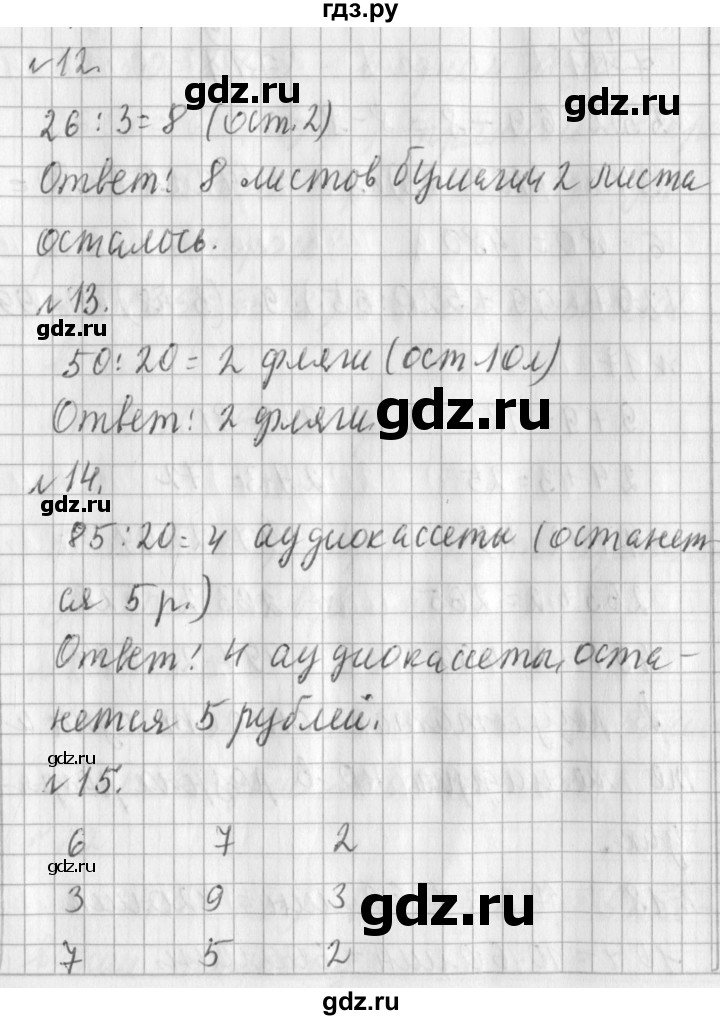 гдз.ру
№12.
gdz.ru
gdz.ru
26 : 3 = 8 (ост. 2)
Ответ: 8 листов бумаги и 2 листа
осталось.
№13.
gdz.ru
50 : 20 = 2 фляги (ост 10 л)
gdz.ru
Ответ: 2 фляги.
№14.
gdz.ru
85 : 20 = 4 аудиокассеты (останет-
ся 5 р.)
gdz.ru
Ответ: 4 аудиокассеты, оста-
нется 5 рублей.
gdz.ru
№15.
6 7 2
gdz.ru
3 9 3
gdz.ru
7 5 2
gdz.ru